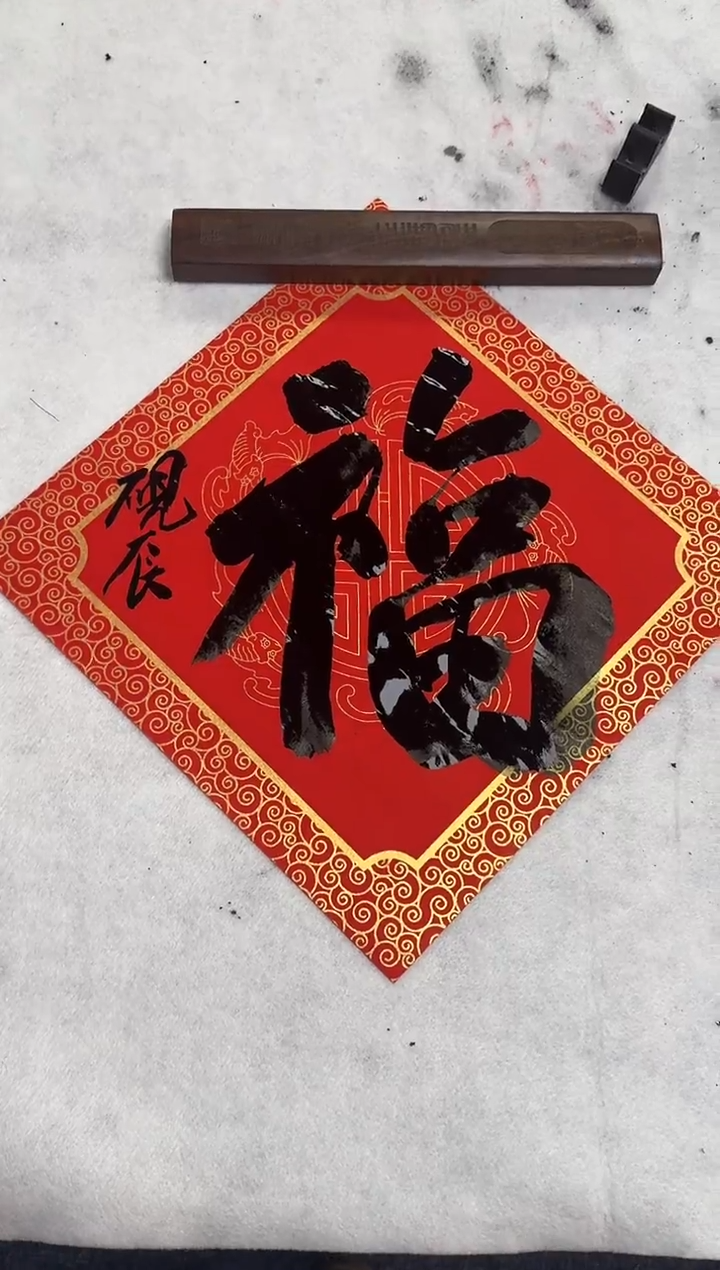 福
砚辰